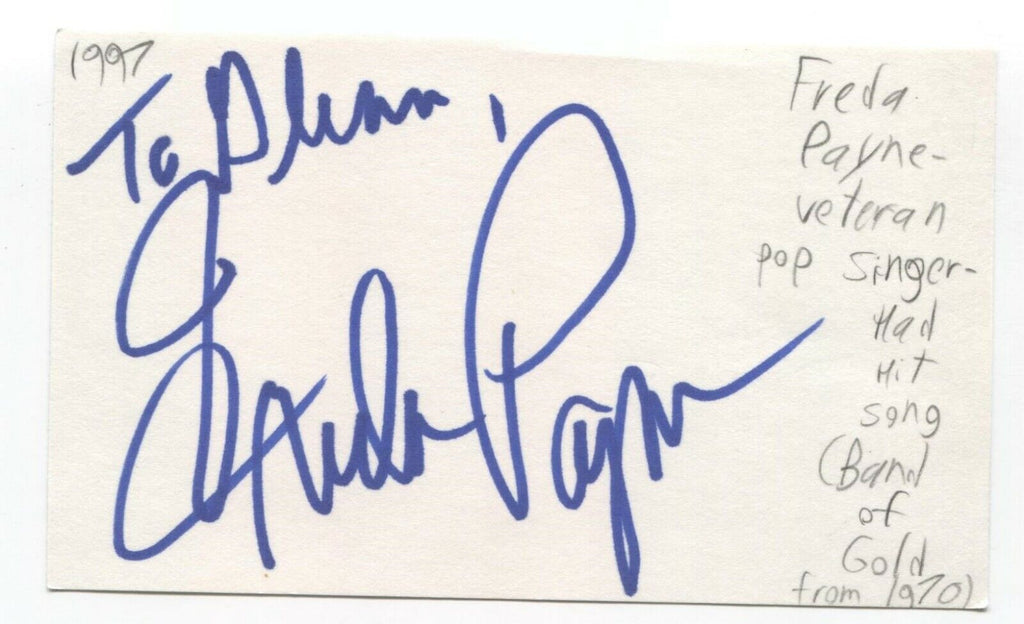 1997
To Glenn,
Freda Payne
Freda
Payne-
veteran
pop singer-
Had
Hit
song
(Band
of
Gold
from 1970)